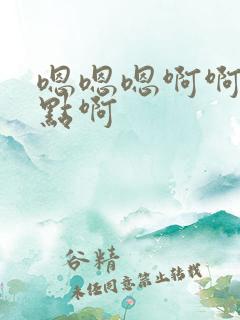 嗯嗯嗯啊啊
點啊
谷精
未经同意禁止转载